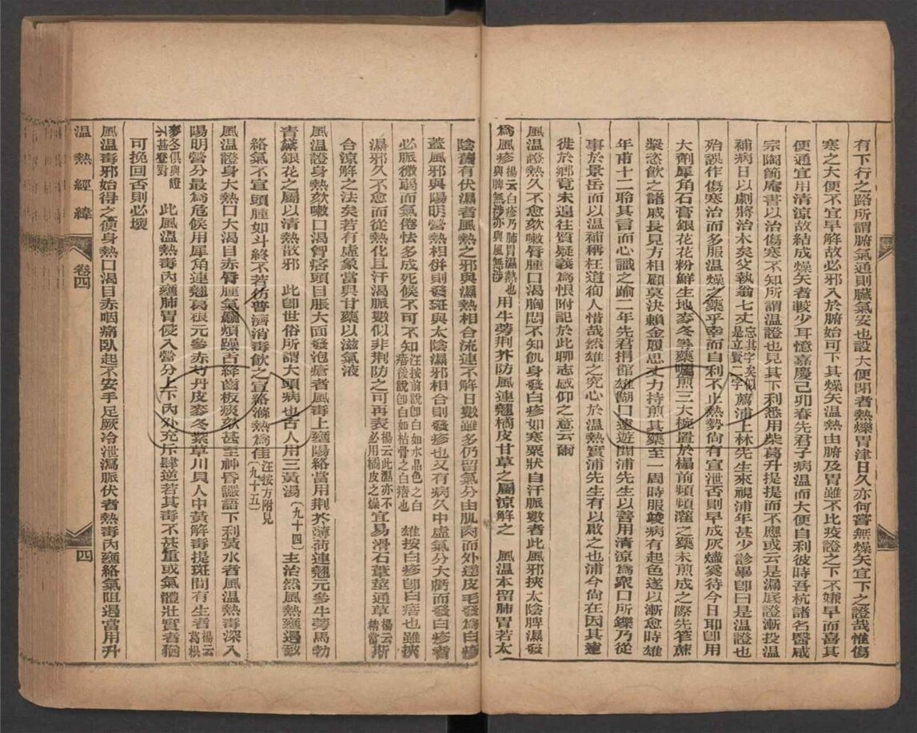 有下行之路所謂腑氣通則臟氣安也設大便閉者熱爍胃津日久亦何嘗無燥矢宜下之證哉惟傷
寒之大便不宜早解故必邪入於腑始可下其燥矢溫熱由肺及胃雖不比疫證之下不嫌早而喜其
便通宜用清涼故結成燥矢者較少耳憶嘉慶己卯春先君子病溫而大便自利彼時吾杭諸名醫咸
宗陶節庵書以治傷寒不知所謂溫證也見其下利悉用柴葛升提提而不應或云是漏底證漸投溫
補病日以劇將治木矣父執翁七丈忘其字矣似是立賢二字薦浦上林先生來視浦年甚少診畢卽曰是溫證也
殆誤作傷寒治而多服溫燥之藥乎幸而自利不止熱勢尚有宣泄否則早成灰燼奚待今日耶卽用
大劑犀角石膏銀花花粉鮮生地麥冬等藥囑煎三大椀置於榻前頻頻灌之藥未煎成之際先笮蔗
漿恣飲之諸戚長見方相顧莫決賴金履思丈力持煎其藥至一周時服竣病有起色遂以漸愈時雄
年甫十二聆其言而心識之踰二年先君捐館雄糊口遠遊聞浦先生以善用清涼爲眾口所鑠乃從
事於景岳而以溫補稱枉道徇人惜哉然雄之究心於溫熱實浦先生有以啟之也浦今尚在因其遠
徙於鄉竟未遑往質疑義爲恨附記於此聊志感仰之意云爾
風溫證熱久不愈欬嗽脣腫口渴胸悶不知飢身發白疹如寒粟狀自汗脈數者此風邪挾太陰脾濕發
爲風疹楊云白疹乃肺胃濕熱也與脾無涉亦與風無涉用牛蒡荊芥防風連翹橘皮甘草之屬涼解之 風溫本留肺胃若太
陰舊有伏濕者風熱之邪與濕熱相合流連不解日數雖多仍留氣分由肌肉而外達皮毛發爲白疹
蓋風邪與陽明營熱相併則發斑與太陰濕邪相合則發疹也又有病久中虛氣分大虧而發白疹者
必脈微弱而氣倦怯多成死候不可不知汪按前說卽白如水晶色之白㾦後說卽白如枯骨之白㾦也 雄按白疹卽白㾦也雖挾
濕邪久不愈而從熱化且汗渴脈數似非荊防之可再表楊云此濕亦不必用橘皮之燥宜易滑石葦莖通草楊云精當斯
合涼解之法矣若有虛象當與甘藥以滋氣液
風溫證身熱欬嗽口渴脅痞頭目脹大面發泡瘡者風毒上壅陽絡當用荊芥薄荷連翹元參牛蒡馬勃
青黛銀花之屬以清熱散邪 此卽世俗所謂大頭病也古人用三黃湯(九十四)主治然風熱壅遏致
絡氣不宣頭腫如斗終不若仿普濟消毒飲之宣絡滌熱爲佳汪按方附見(九十五)
風溫證身大熱口大渴目赤脣腫氣麤煩躁舌絳齒板痰欬甚至神昏讝語下利黃水者風溫熱毒深入
陽明營分最爲危候用犀角連翹葛根元參赤芍丹皮麥冬紫草川貝人中黃解毒提斑間有生者楊云葛根
麥冬俱與證不甚登對 此風溫熱毒內壅肺胃侵入營分上下內外充斥肆逆若其毒不甚重或氣體壯實者猶
可挽回否則必壞
風溫毒邪始得之便身熱口渴目赤咽痛臥起不安手足厥冷泄瀉脈伏者熱毒內壅絡氣阻遏當用升
溫熱經緯
卷四
四